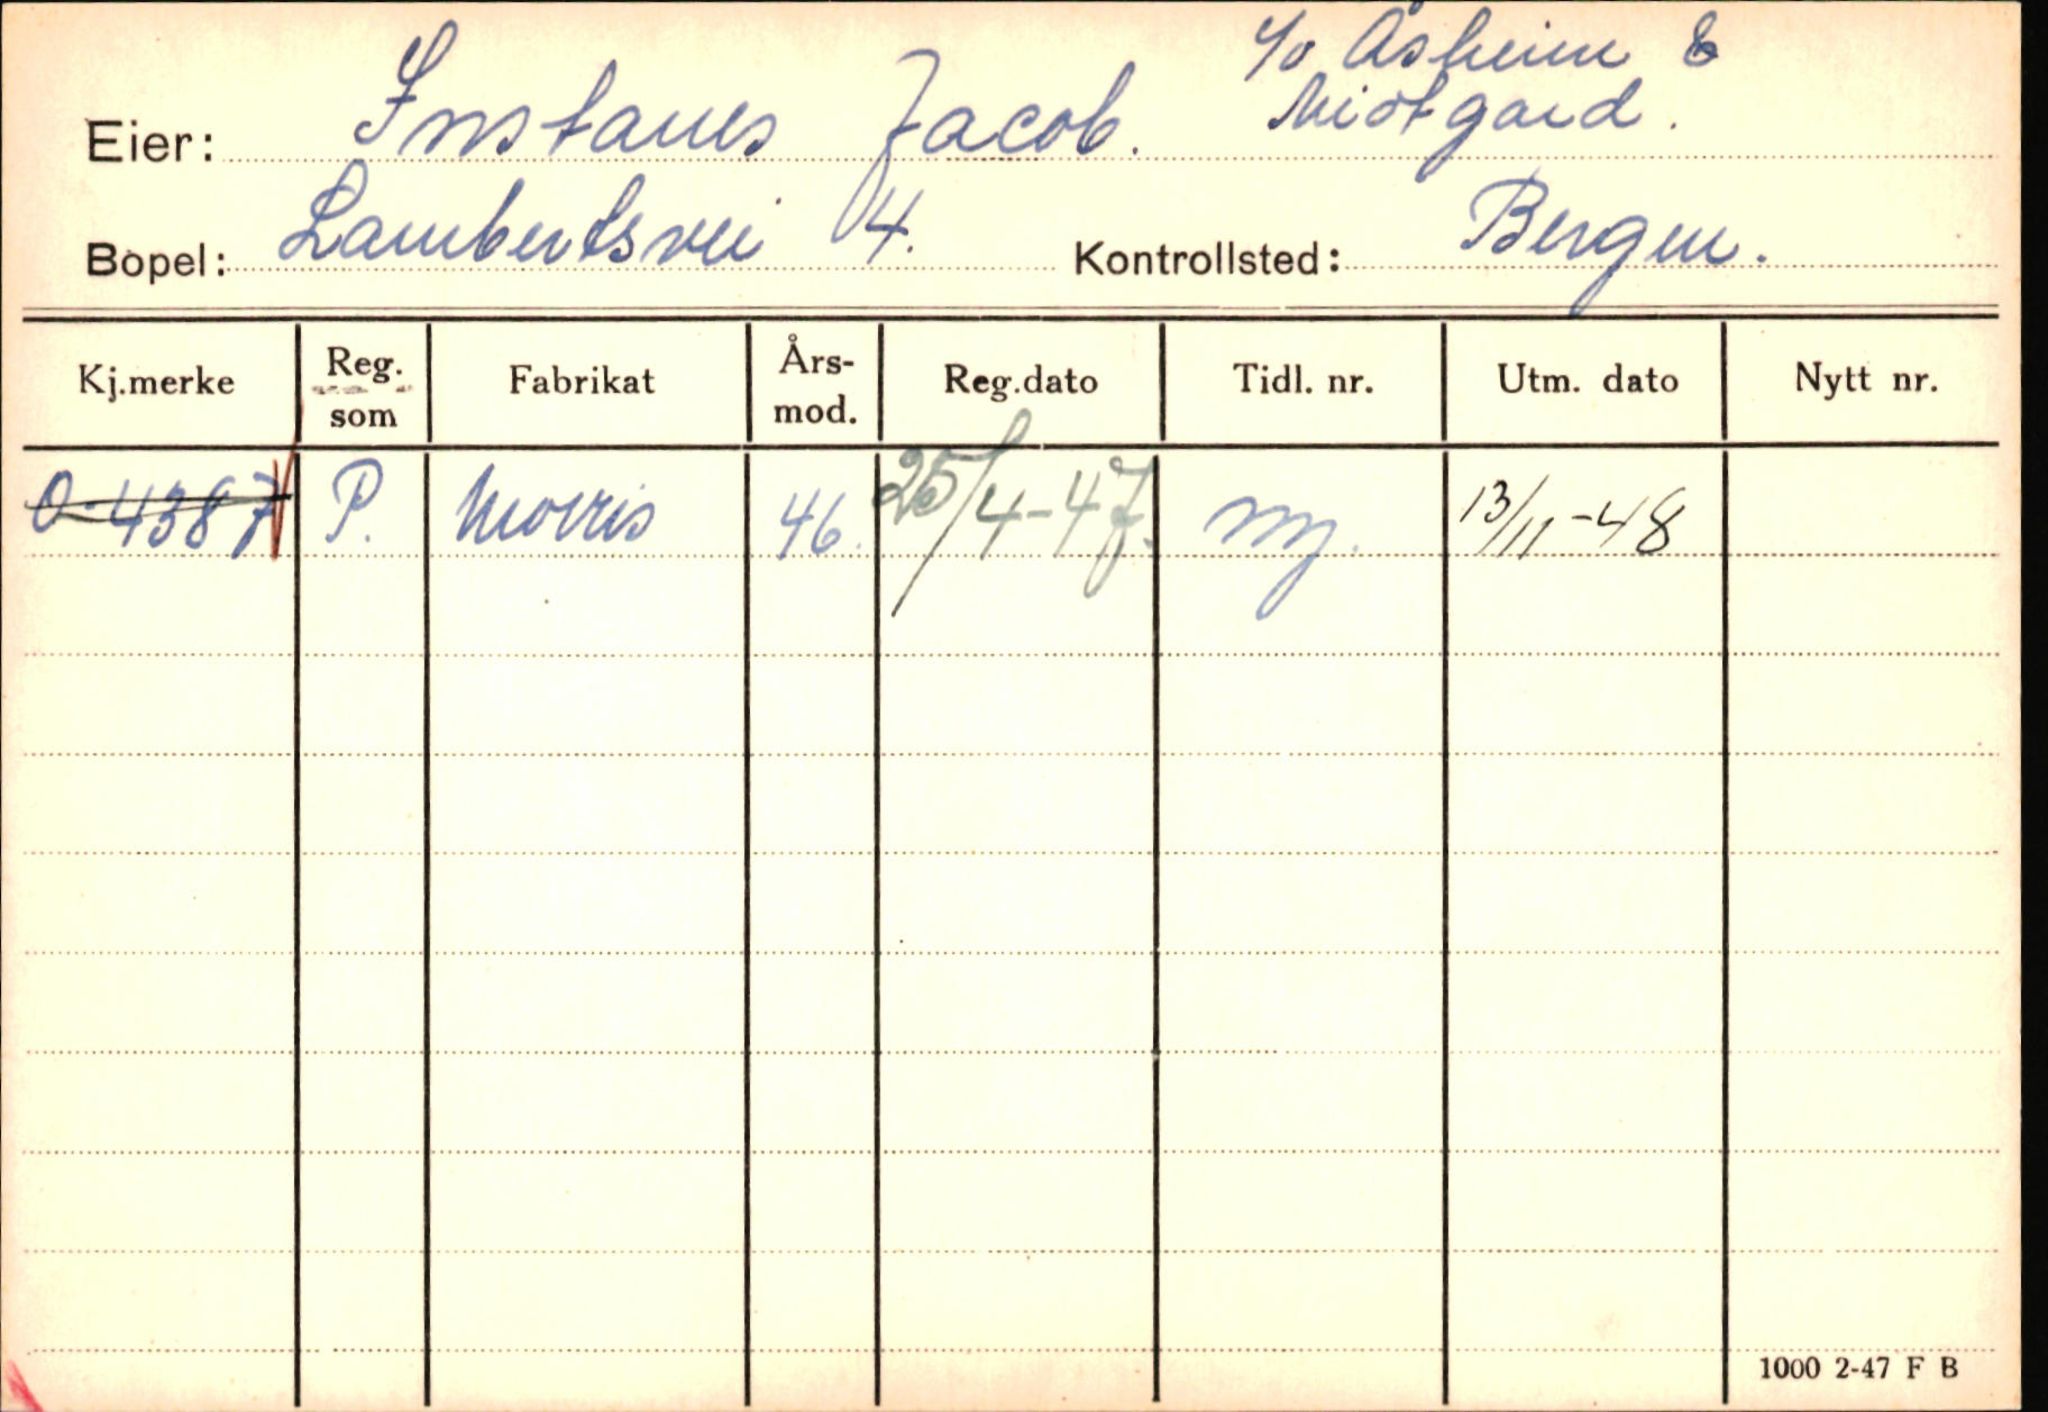 c/o Åsheim &
Eier: Instanes Jacob. Midtgard.
Bopel: Lambertsvei 4. Kontrollsted: Bergen.
Kj.merke Reg. som Fabrikat Års-mod. Reg.dato Tidl. nr. Utm. dato Nytt nr.
O-4387 P. Morris 46. 25/4-47. ny. 13/11-48
1000 2-47 F B